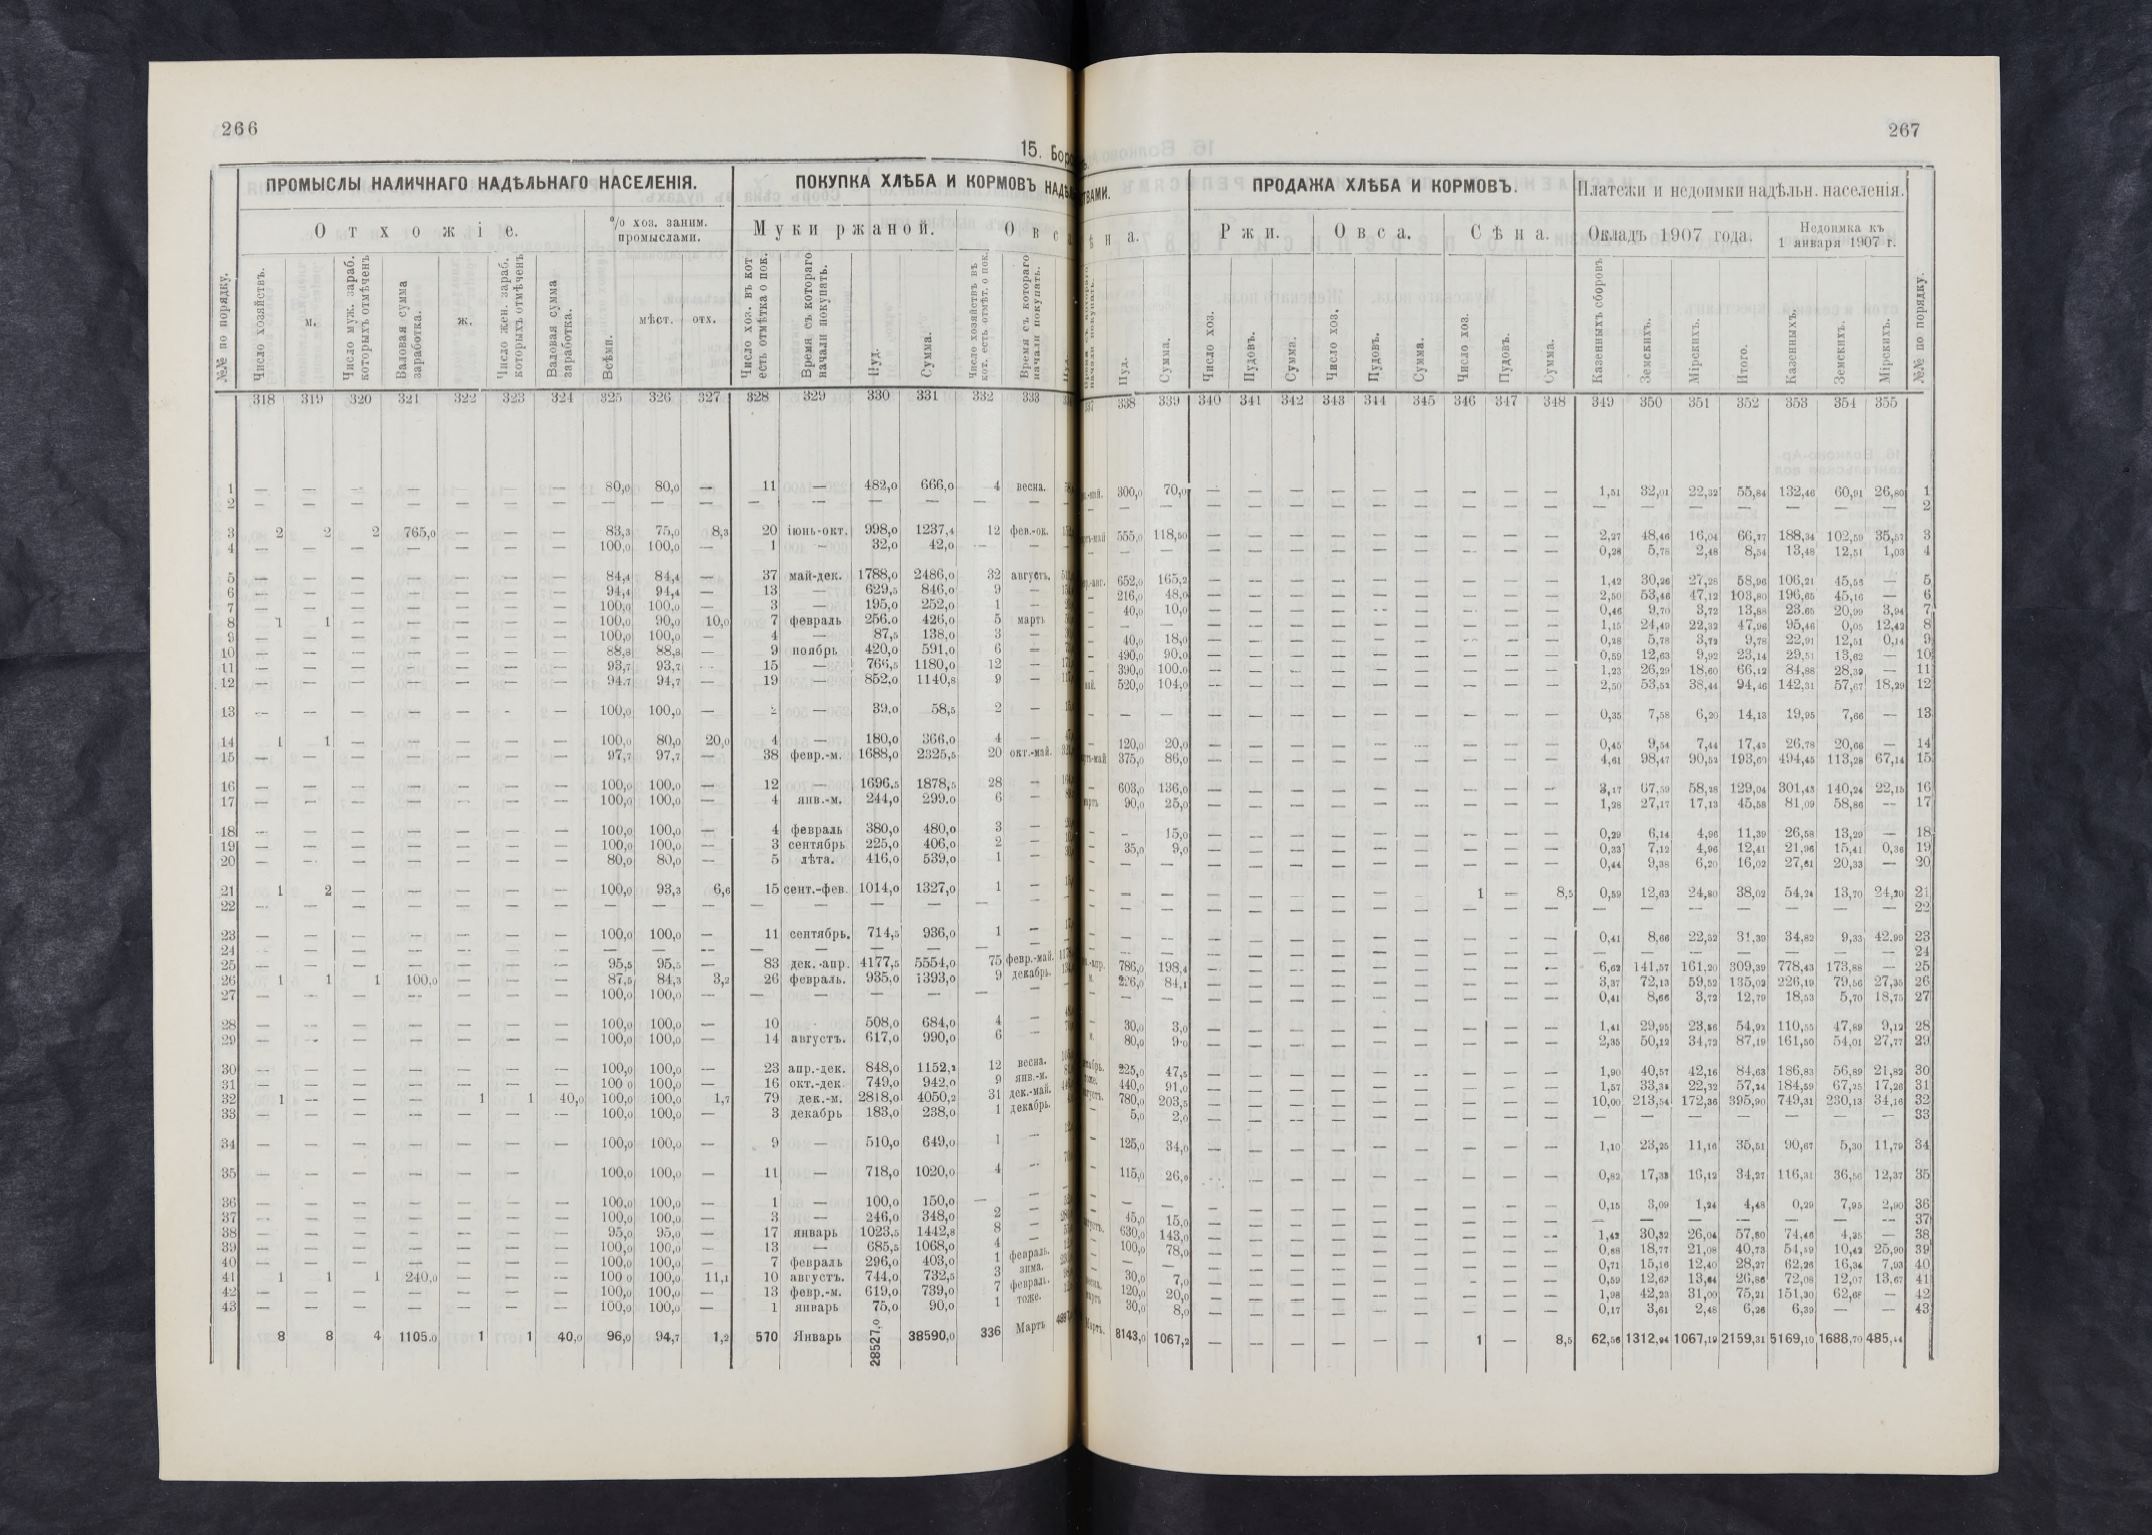 266
15. Бор
ПРОМЫСЛЫ НАЛИЧНАГО НАДѢЛЬНАГО НАСЕЛЕНІЯ.
ПОКУПКА ХЛѢБА И КОРМОВЪ
Отхожіе.
% хоз. заним. промыслами.
Муки ржаной.
№№ по порядку.
Число хозяйствъ.
м.
Число муж. зараб. которыхъ отмѣченъ
Валовая сумма заработка.
ж.
Число жен. зараб. которыхъ отмѣченъ
Валовая сумма заработка.
Всѣми.
мѣст.
отх.
Число хоз. въ кот есть отмѣтка о пок.
Время съ котораго начали покупать.
Пуд.
Сумма.
Число хозяйствъ въ кот. есть отмѣт. о пок.
Время съ котораго начали покупать.
318 319 320 321 322 323 324 325 326 327 328 329 330 331 332 333
1 — — — — — — — 80,0 80,0 — 11 — 482,0 666,0 4 весна.
2 — — — — — — — — — — — — — — — —
3 2 2 2 765,0 — — — 83,3 75,0 8,3 20 іюнь-окт. 998,0 1237,4 12 фев.-ок.
4 — — — — — — — 100,0 100,0 — 1 — 32,0 42,0 — —
5 — — — — — — — 84,4 84,4 — 37 май-дек. 1788,0 2486,0 32 августъ.
6 — — — — — — — 94,4 94,4 — 13 — 629,5 846,0 9 —
7 — — — — — — — 100,0 100,0 — 3 — 195,0 252,0 1 —
8 1 1 — — — — — 100,0 90,0 10,0 7 февраль 256,0 426,0 5 мартъ
9 — — — — — — — 100,0 100,0 — 4 — 87,5 138,0 3 —
10 — — — — — — — 88,8 88,8 — 9 ноябрь 420,0 591,0 6 —
11 — — — — — — — 93,7 93,7 — 15 — 766,5 1180,0 12 —
12 — — — — — — — 94,7 94,7 — 19 — 852,0 1140,8 9 —
13 — — — — — — — 100,0 100,0 — 2 — 39,0 58,5 2 —
14 1 1 — — — — — 100,0 80,0 20,0 4 — 180,0 366,0 4 —
15 — — — — — — — 97,7 97,7 — 38 февр.-м. 1688,0 2325,5 20 окт.-май.
16 — — — — — — — 100,0 100,0 — 12 — 1696,5 1878,5 28 —
17 — — — — — — — 100,0 100,0 — 4 янв.-м. 244,0 299,0 6 —
18 — — — — — — — 100,0 100,0 — 4 февраль 380,0 480,0 3 —
19 — — — — — — — 100,0 100,0 — 3 сентябрь 225,0 406,0 2 —
20 — — — — — — — 80,0 80,0 — 5 лѣта. 416,0 539,0 1 —
21 1 2 — — — — — 100,0 93,3 6,6 15 сент.-фев. 1014,0 1327,0 1 —
22 — — — — — — — — — — — — — — — —
23 — — — — — — — 100,0 100,0 — 11 сентябрь. 714,5 936,0 1 —
24 — — — — — — — — — — — — — — — —
25 — — — — — — — 95,5 95,5 — 83 дек.-апр. 4177,5 5554,0 75 февр.-май.
26 1 1 1 100,0 — — — 87,5 84,3 3,2 26 февраль. 935,0 1393,0 9 декабрь.
27 — — — — — — — 100,0 100,0 — — — — — — —
28 — — — — — — — 100,0 100,0 — 10 508,0 684,0 4 —
29 — — — — — — — 100,0 100,0 — 14 августъ. 617,0 990,0 6 —
30 — — — — — — — 100,0 100,0 — 23 апр.-дек. 848,0 1152,2 12 весна.
31 — — — — — — — 100 0 100,0 — 16 окт.-дек. 749,0 942,0 9 янв.-м.
32 1 — — — 1 1 40,0 100,0 100,0 1,7 79 дек.-м. 2818,0 4050,2 31 дек.-май.
33 — — — — — — — 100,0 100,0 — 3 декабрь 183,0 238,0 1 декабрь.
34 — — — — — — — 100,0 100,0 — 9 — 510,0 649,0 1 —
35 — — — — — — — 100,0 100,0 — 11 — 718,0 1020,0 4 —
36 — — — — — — — 100,0 100,0 — 1 — 100,0 150,0 — —
37 — — — — — — — 100,0 100,0 — 3 — 246,0 348,0 2 —
38 — — — — — — — 95,0 95,0 — 17 январь 1023,5 1442,8 8 —
39 — — — — — — — 100,0 100,0 — 13 — 685,5 1068,0 4
40 — — — — — — — 100,0 100,0 — 7 февраль 296,0 403,0 1 февраль.
41 1 1 1 240,0 — — — 100 0 100,0 11,1 10 августъ. 744,0 732,5 3 зима.
42 — — — — — — — 100,0 100,0 — 13 февр.-м. 619,0 739,0 7 февраль.
43 — — — — — — — 100,0 100,0 — 1 январь 75,0 90,0 1 тоже.
8 8 4 1105,0 1 1 40,0 96,0 94,7 1,2 570 Январь 28527,0 38590,0 336 Мартъ
267
ПРОДАЖА ХЛѢБА И КОРМОВЪ.
Платежи и недоимки надѣльн. населенія.
Ржи.
Овса.
Сѣна.
Окладъ 1907 года.
Недоимка къ 1 января 1907 г.
Пуд.
Сумма.
Число хоз.
Пудовъ.
Сумма.
Число хоз.
Пудовъ.
Сумма.
Число хоз.
Пудовъ.
Сумма.
Казенныхъ сборовъ
Земскихъ.
Мірскихъ.
Итого.
Казенныхъ.
Земскихъ.
Мірскихъ.
№№ по порядку.
338 339 340 341 342 343 344 345 346 347 348 349 350 351 352 353 354 355
300,0 70,0 — — — — — — — — — 1,51 32,01 22,32 55,84 132,46 60,91 26,80 1
— — — — — — — — — — — — — — — — — — 2
555,0 118,50 — — — — — — — — — 2,27 48,46 16,04 66,77 188,34 102,59 35,57 3
— — — — — — — — — — — 0,28 5,78 2,48 8,54 13,48 12,51 1,03 4
652,0 165,2 — — — — — — — — — 1,42 30,26 27,28 58,96 106,21 45,53 — 5
216,0 48,0 — — — — — — — — — 2,50 53,46 47,12 103,80 196,65 45,16 — 6
40,0 10,0 — — — — — — — — — 0,46 9,70 3,72 13,88 23,65 20,99 3,94 7
— — — — — — — — — — — 1,15 24,49 22,32 47,96 95,46 0,05 12,42 8
40,0 18,0 — — — — — — — — — 0,28 5,78 3,72 9,78 22,91 12,51 0,14 9
490,0 90,0 — — — — — — — — — 0,59 12,63 9,92 23,14 29,51 13,62 — 10
390,0 100,0 — — — — — — — — — 1,23 26,29 18,60 66,12 84,88 28,39 — 11
520,0 104,0 — — — — — — — — — 2,50 53,52 38,44 94,46 142,31 57,67 18,29 12
— — — — — — — — — — — 0,35 7,58 6,20 14,13 19,95 7,66 — 13
120,0 20,0 — — — — — — — — — 0,45 9,54 7,44 17,43 26,78 20,66 — 14
375,0 86,0 — — — — — — — — — 4,61 98,47 90,52 193,60 494,45 113,28 67,14 15
603,0 136,0 — — — — — — — — — 3,17 67,59 58,28 129,04 301,43 140,24 22,15 16
90,0 25,0 — — — — — — — — — 1,28 27,17 17,13 45,58 81,09 58,86 — 17
— 15,0 — — — — — — — — — 0,29 6,14 4,96 11,39 26,58 13,29 — 18
35,0 9,0 — — — — — — — — — 0,33 7,12 4,96 12,41 21,96 15,41 0,36 19
— — — — — — — — — — — 0,44 9,38 6,20 16,02 27,61 20,33 — 20
— — — — — — — — 1 — 8,5 0,59 12,63 24,80 38,02 54,24 13,70 24,20 21
— — — — — — — — — — — — — — — — — — 22
— — — — — — — — — — — 0,41 8,66 22,32 31,39 34,82 9,33 42,99 23
— — — — — — — — — — — — — — — — — — 24
786,0 198,4 — — — — — — — — — 6,62 141,57 161,20 309,39 778,43 173,88 — 25
226,0 84,1 — — — — — — — — — 3,37 72,13 59,52 135,02 226,19 79,56 27,35 26
— — — — — — — — — — — 0,41 8,66 3,72 12,79 18,53 5,70 18,75 27
30,0 3,0 — — — — — — — — — 1,41 29,95 23,56 54,92 110,55 47,89 9,12 28
80,0 9,0 — — — — — — — — — 2,35 50,12 34,72 87,19 161,50 54,01 27,77 29
225,0 47,5 — — — — — — — — — 1,90 40,57 42,16 84,63 186,83 56,89 21,82 30
440,0 91,0 — — — — — — — — — 1,57 33,35 22,32 57,24 184,59 67,25 17,26 31
780,0 203,5 — — — — — — — — — 10,00 213,54 172,36 395,90 749,31 230,13 34,16 32
5,0 2,0 — — — — — — — — — — — — — — — — 33
125,0 34,0 — — — — — — — — — 1,10 23,25 11,16 35,51 90,67 5,30 11,79 34
115,0 26,0 — — — — — — — — — 0,82 17,33 16,12 34,27 116,31 36,56 12,37 35
— — — — — — — — — — — 0,15 3,09 1,24 4,48 0,29 7,95 2,90 36
45,0 15,0 — — — — — — — — — — — — — — — — 37
630,0 143,0 — — — — — — — — — 1,42 30,32 26,04 57,80 74,46 4,25 — 38
100,0 78,0 — — — — — — — — — 0,88 18,77 21,08 40,73 54,59 10,42 25,90 39
— — — — — — — — — — — 0,71 15,16 12,40 28,27 62,26 16,34 7,93 40
30,0 7,0 — — — — — — — — — 0,59 12,63 13,64 26,86 72,08 12,07 13,67 41
120,0 20,0 — — — — — — — — — 1,98 42,23 31,00 75,21 151,30 62,68 — 42
30,0 8,0 — — — — — — — — — 0,17 3,61 2,48 6,26 6,39 — — 43
8143,0 1067,2 — — — — — — 1 — 8,5 62,56 1312,94 1067,19 2159,31 5169,10 1688,70 485,44